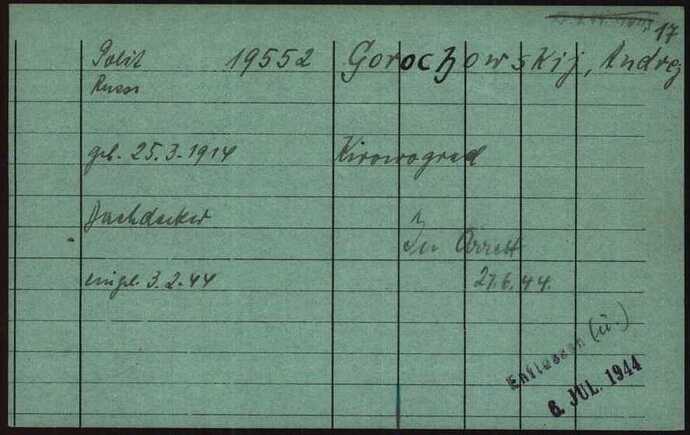 17
Polit 19552 Gorochowskij, Andrej
Russ
geb. 25.3.1914 Kirowograd
Dachdecker
In Arrest
eingel. 3.2.44 27.6.44.
Entlassen (ü.)
6. JUL. 1944